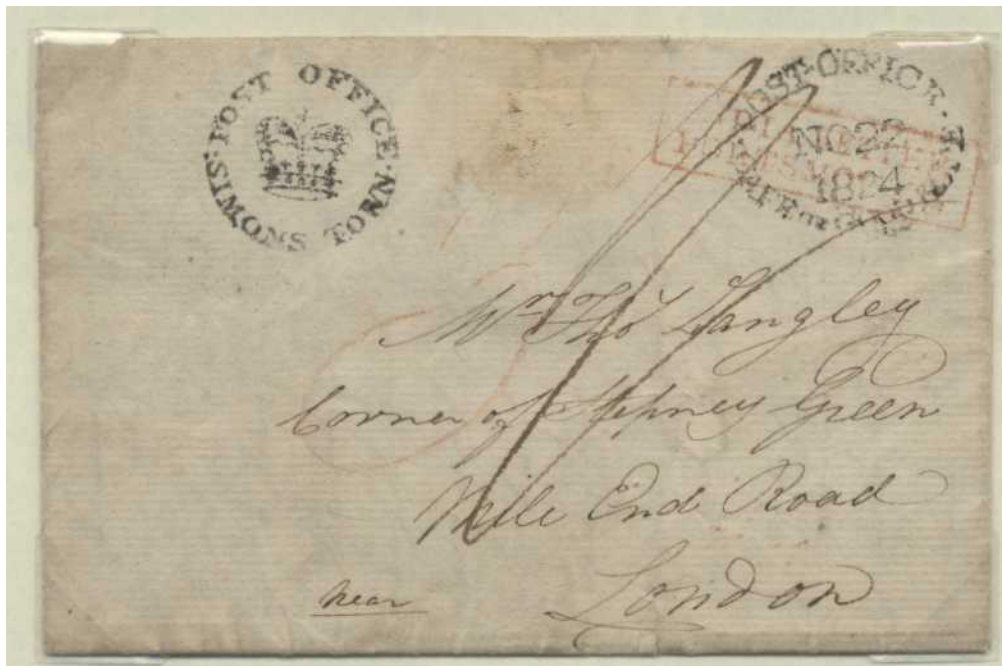 POST OFFICE
SIMONS TOWN
POST OFFICE
NO 22
1824
Mr Thos Langley
Corner of Stepney Green
Mile End Road
London
near